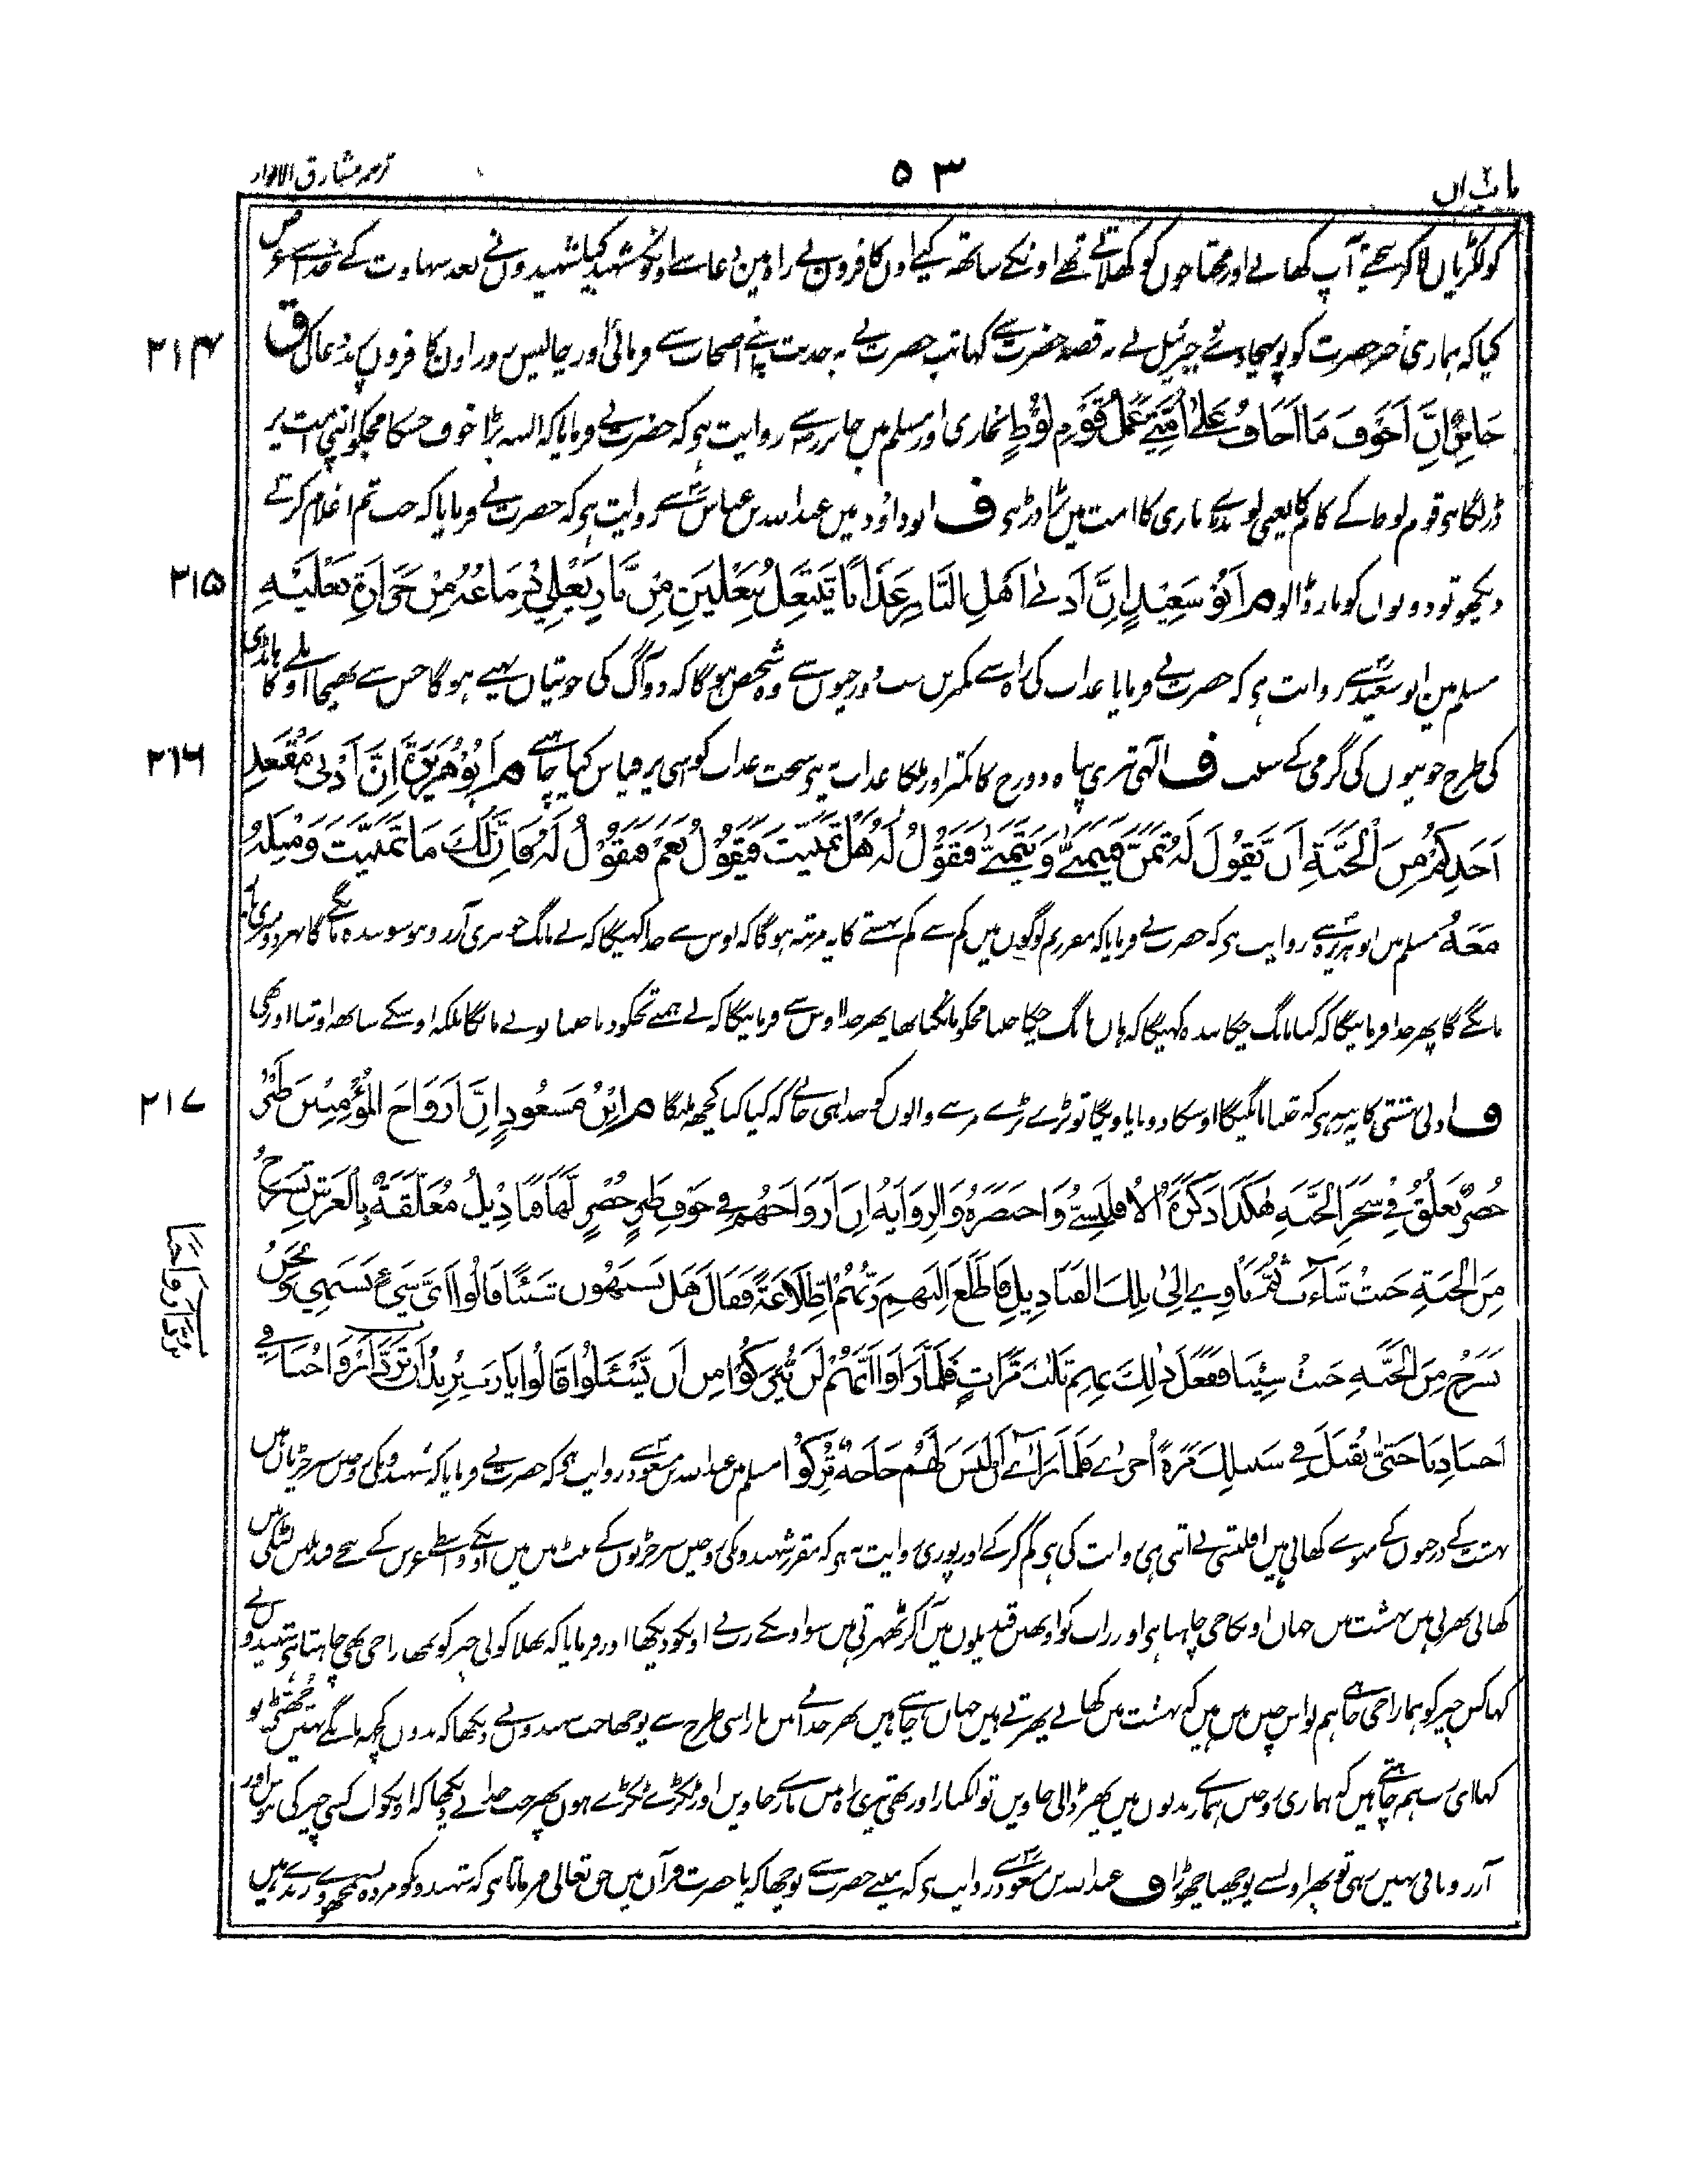 باب ۲ ان
۵۳
ترجمہ مشارق الانوار
کو لکڑیاں لاکر بیچتے آپ کھاتے اور محتاجوں کو کھلاتے تھے اونکے ساتھ کیے اون کافروں نے راہ مین دغا سے اونکو شہید کیا شہیدوں نے بعد شہادت کے خدا سے عرض
کیا کہ ہماری خبر حضرت کو پہنچا دے جبرئیل نے یہ قصہ حضرت سے کہا تب حضرت نے یہ حدیث اپنے اصحاب سے فرمائی اور چالیس روز اون کافروں پر بددعا کی ق
۲۱۴
جَابِرٌ اِنَّ اَخْوَفَ مَا اَخَافُ عَلٰى اُمَّتِيْ عَمَلُ قَوْمِ لُوْطٍ بخاری اور مسلم میں جابر رضہ سے روایت ہی کہ حضرت نے فرمایا کہ البتہ بڑا خوف جسکا مجکو اپنی امت پر
ڈر لگا ہی قوم لوط کے کام کا یعنی لونڈے بازی کا امت میں بڑا ڈر ہی ف ابوداؤد میں عبداللہ بن عباس سے روایت ہی کہ حضرت نے فرمایا کہ جب تم اغلام کرتے
دیکھو تو دونوں کو مار ڈالو م اَبُوْ سَعِيْدٍ اِنَّ اَدْنٰى اَهْلِ النَّارِ عَذَابًا يَنْتَعِلُ بِنَعْلَيْنِ مِنْ نَّارٍ يَغْلِيْ دِمَاغُهُ مِنْ حَرَارَةِ نَعْلَيْهِ
۲۱۵
مسلم مین ابو سعید سے روایت ہی کہ حضرت نے فرمایا عذاب کی راہ سے کمترین سب دوزخیوں سے وہ شخص ہوگا کہ دو آگ کی جوتیاں پہنے ہوگا جس سے بھیجا اوسکا اُبلے ہانڈی
کی طرح جوتیوں کی گرمی کے سبب ف الٰہی تیری پناہ دوزخ کا کمتر اور ہلکا عذاب یہ ہی سخت عذاب کو اسی پر قیاس کیا چاہیے م اَبُوْ هُرَيْرَةَ اِنَّ اَدْنٰى مَقْعَدِ
۲۱۶
اَحَدِكُمْ مِنَ الْجَنَّةِ اَنْ يَّقُوْلَ لَهُ تَمَنَّ فَيَتَمَنّٰى وَيَتَمَنّٰى فَيَقُوْلُ لَهُ هَلْ تَمَنَّيْتَ فَيَقُوْلُ نَعَمْ فَيَقُوْلُ لَهُ فَاِنَّ لَكَ مَا تَمَنَّيْتَ وَمِثْلَهُ
مَعَهُ مسلم میں ابوہریرہ سے روایت ہی کہ حضرت نے فرمایا کہ مقرر تم لوگوں میں کم سے کم بہشتی کا یہ مرتبہ ہوگا کہ اوس سے خدا کہیگا کہ لے مانگ جو تیری آرزو ہو سو بندہ مانگے گا پھر دوسری بار
مانگے گا پھر خدا فرمایگا کہ کیا مانگ چکا بندہ کہیگا کہ ہاں مانگ چکا جتنا مجکو مانگنا تھا پھر خدا اوس سے فرمایگا کہ لے ہمنے تجکو دیا جتنا تونے مانگا بلکہ اوسکے ساتھ اوتنا اور بھی
ف ادنی بہشتی کا یہ رتبہ ہی کہ جتنا مانگیگا اوسکا دونا پاویگا تو بڑے بڑے مرتبے والوں کو خدا ہی جانے کہ کیا کیا کچھ ملیگا م اِبْنُ مَسْعُوْدٍ اِنَّ اَرْوَاحَ الْمُؤْمِنِيْنَ طَيْرٌ
۲۱۷
خُضْرٌ تَعْلُقُ فِيْ شَجَرِ الْجَنَّةِ هٰكَذَا ذَكَرَهُ الْاُقْلِيْسِيُّ وَاخْتَصَرَهُ وَالرِّوَايَةُ اِنَّ اَرْوَاحَهُمْ فِيْ جَوْفِ طَيْرٍ خُضْرٍ لَهَا قَنَادِيْلُ مُعَلَّقَةٌ بِالْعَرْشِ تَسْرَحُ
مِنَ الْجَنَّةِ حَيْثُ شَاءَتْ ثُمَّ تَاْوِيْ اِلٰى تِلْكَ الْقَنَادِيْلِ فَاطَّلَعَ اِلَيْهِمْ رَبُّهُمُ اطِّلَاعَةً فَقَالَ هَلْ تَشْتَهُوْنَ شَيْئًا قَالُوْا اَيَّ شَيْءٍ نَشْتَهِيْ وَنَحْنُ
نَسْرَحُ مِنَ الْجَنَّةِ حَيْثُ شِئْنَا فَفَعَلَ ذٰلِكَ بِهِمْ ثَلٰثَ مَرَّاتٍ فَلَمَّا رَاَوْا اَنَّهُمْ لَنْ يُّتْرَكُوْا مِنْ اَنْ يَّسْئَلُوْا قَالُوْا يَا رَبِّ نُرِيْدُ اَنْ تَرُدَّ اَرْوَاحَنَا فِيْ
تَرُدَّ اَرْوَاحَنَا
اَجْسَادِنَا حَتّٰى نُقْتَلَ فِيْ سَبِيْلِكَ مَرَّةً اُخْرٰى فَلَمَّا رَاٰى اَنْ لَيْسَ لَهُمْ حَاجَةٌ تُرِكُوْا مسلم میں عبداللہ بن مسعود سے روایت ہی کہ حضرت نے فرمایا کہ شہیدونکی روحیں سبز چڑیاں ہیں
بہشت کے درختوں کے میوے کھاتی ہیں اقلیسی نے اتنی ہی روایت کی ہی کم کرکے اور پوری روایت یہ ہی کہ مقرر شہیدونکی روحیں سبز چڑیوں کے پیٹ میں ہیں اونکے واسطے عرش کے نیچے قندیلیں لٹکتی ہیں
کھاتی پھرتی ہیں بہشت میں جہاں اونکا جی چاہتا ہی اور رات کو اونھیں قندیلوں میں آکر ٹھہرتی ہیں سو اونکے رب نے اونکو دیکھا اور فرمایا کہ بھلا کوئی چیز کو تمھارا جی بھی چاہتا ہی شہیدونے
کہا کس چیز کو ہمارا جی چاہے ہم تو اس چین میں ہیں کہ بہشت میں کھاتے پھرتے ہیں جہاں سے چاہیں پھر خدا نے تین بار اسی طرح سے پوچھا جب شہیدونے دیکھا کہ بدوں کچھ مانگے نہیں چھٹتے تو
کہا ای رب ہم چاہتے ہیں کہ ہماری روحیں ہمارے بدنوں میں پھر ڈالی جاویں تو ایکبار اور بھی تیری راہ میں مارے جاویں اور ٹکڑے ٹکڑے ہوں پھر جب خدا نے دیکھا کہ اونکو اب کسی چیز کی ہوس اور
آرزو باقی نہیں رہی تو پھر اونسے پوچھنا چھوڑا ف عبداللہ بن مسعود سے روایت ہی کہ مینے حضرت سے پوچھا کہ یا حضرت قرآن میں حق تعالی فرماتا ہی کہ شہیدونکو مردہ نسمجھو وے زندے ہیں